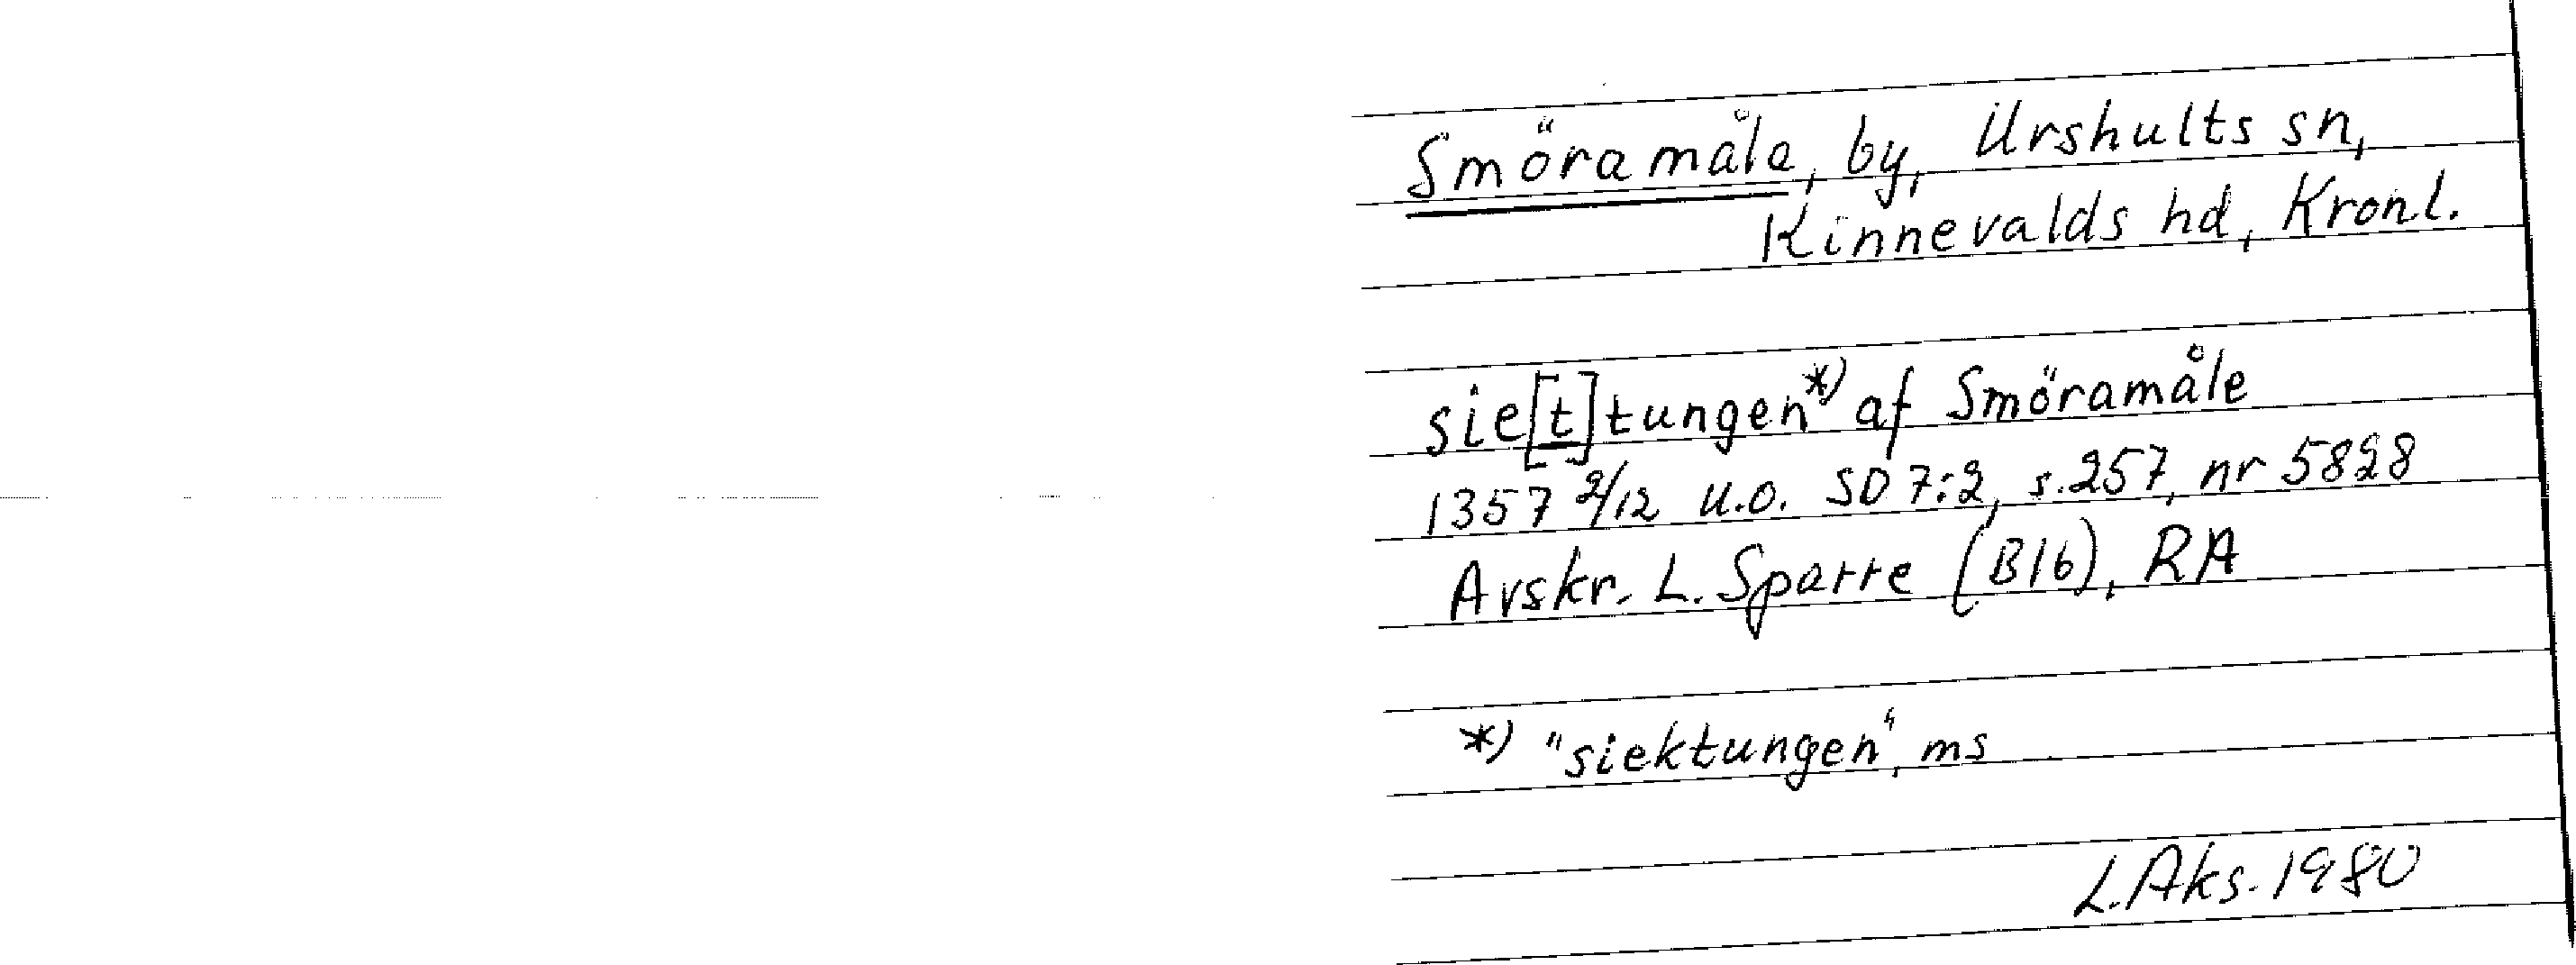 Smöramåla, by, Urshults sn,
Kinnevalds hd, Kronl.
sie[t]tungen*) af Smöramåle
1357 2/12 u.o. SD 7:2, s.257, nr 5828
Avskr. L. Sparre (B16), RA
*) "siektungen", ms
L.Aks. 1980